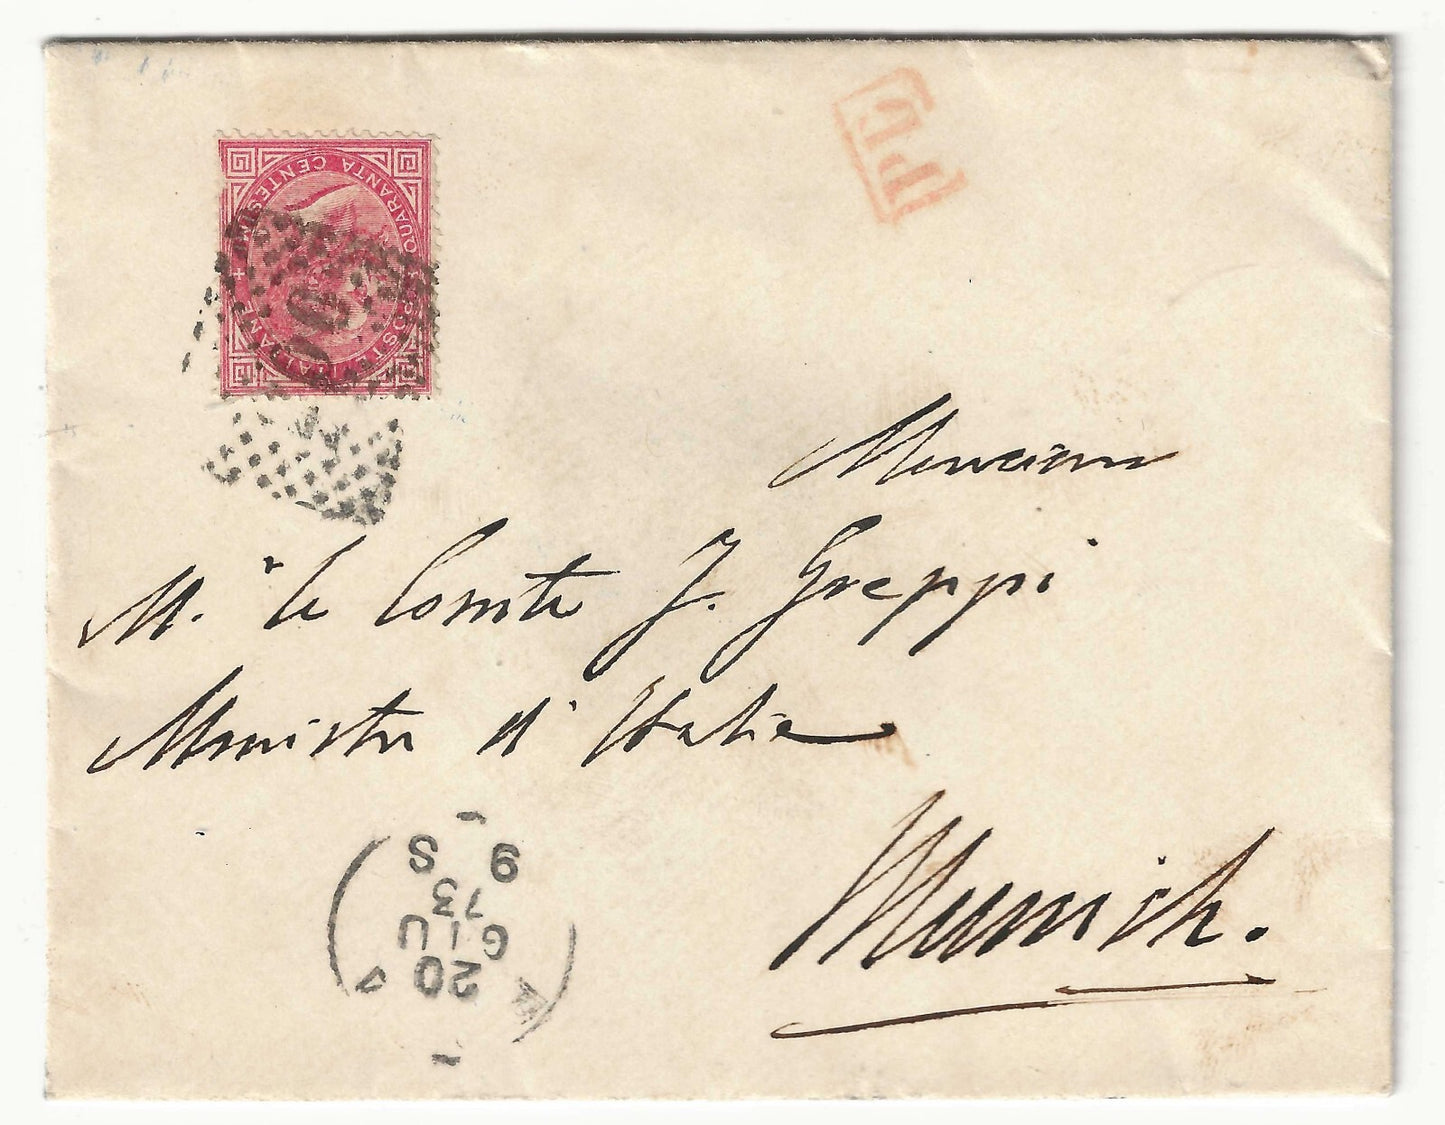 QUARANTA CENTESIMI
POSTE ITALIANE
PD
Monsieur
M. r le Comte J. Greppi
Ministre d'Italie
Munich.
20
GIU
73
9 S